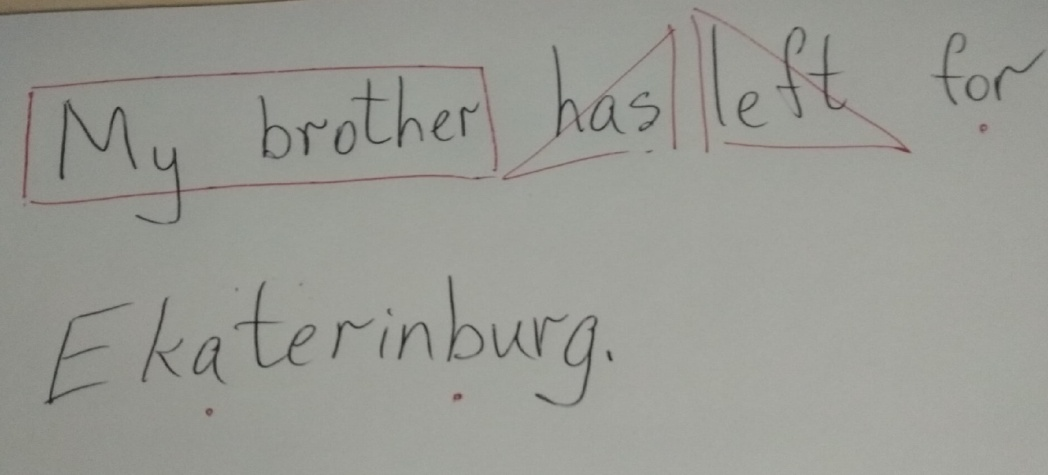 My brother has left for
Ekaterinburg.